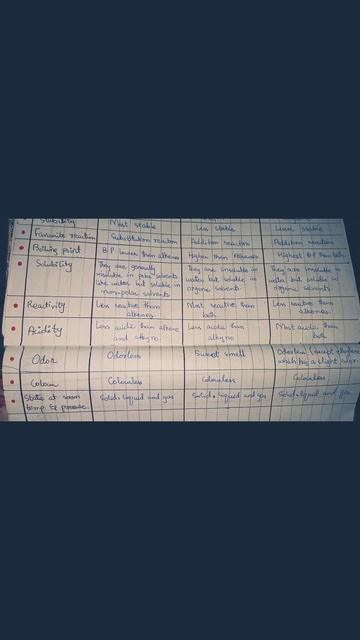 Stability Most stable Less stable Less stable
Favourite reaction Substitution reaction Addition reaction Addition reaction
Boiling point B.P lower than alkenes Higher than Alkanes Highest BP than both
Solubility They are generally They are insoluble in They are insoluble in
insoluble in polar solvents water but soluble in water but soluble in
like water but soluble in organic solvents organic solvents
non-polar solvents
Reactivity Less reactive than Most reactive than Less reactive than
alkenes both alkenes.
Acidity Less acidic than alkene Less acidic than Most acidic than
and alkyne alkyne both
Odor Odorless Sweet smell Odorless (except
which has a slight
Colour Colourless Colourless Colourless
States at room Solid, liquid and gas Solid, liquid and gas Solid, liquid and gas
temp. & pressure.